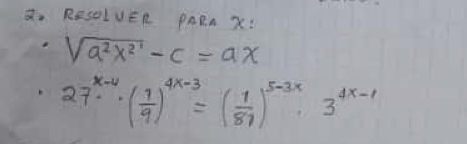 2. RESOLVER PARA X:
• √a²x² - c = ax
• 27^x-4 · (1/9)^4x-3 = (1/81)^5-3x · 3^4x-1